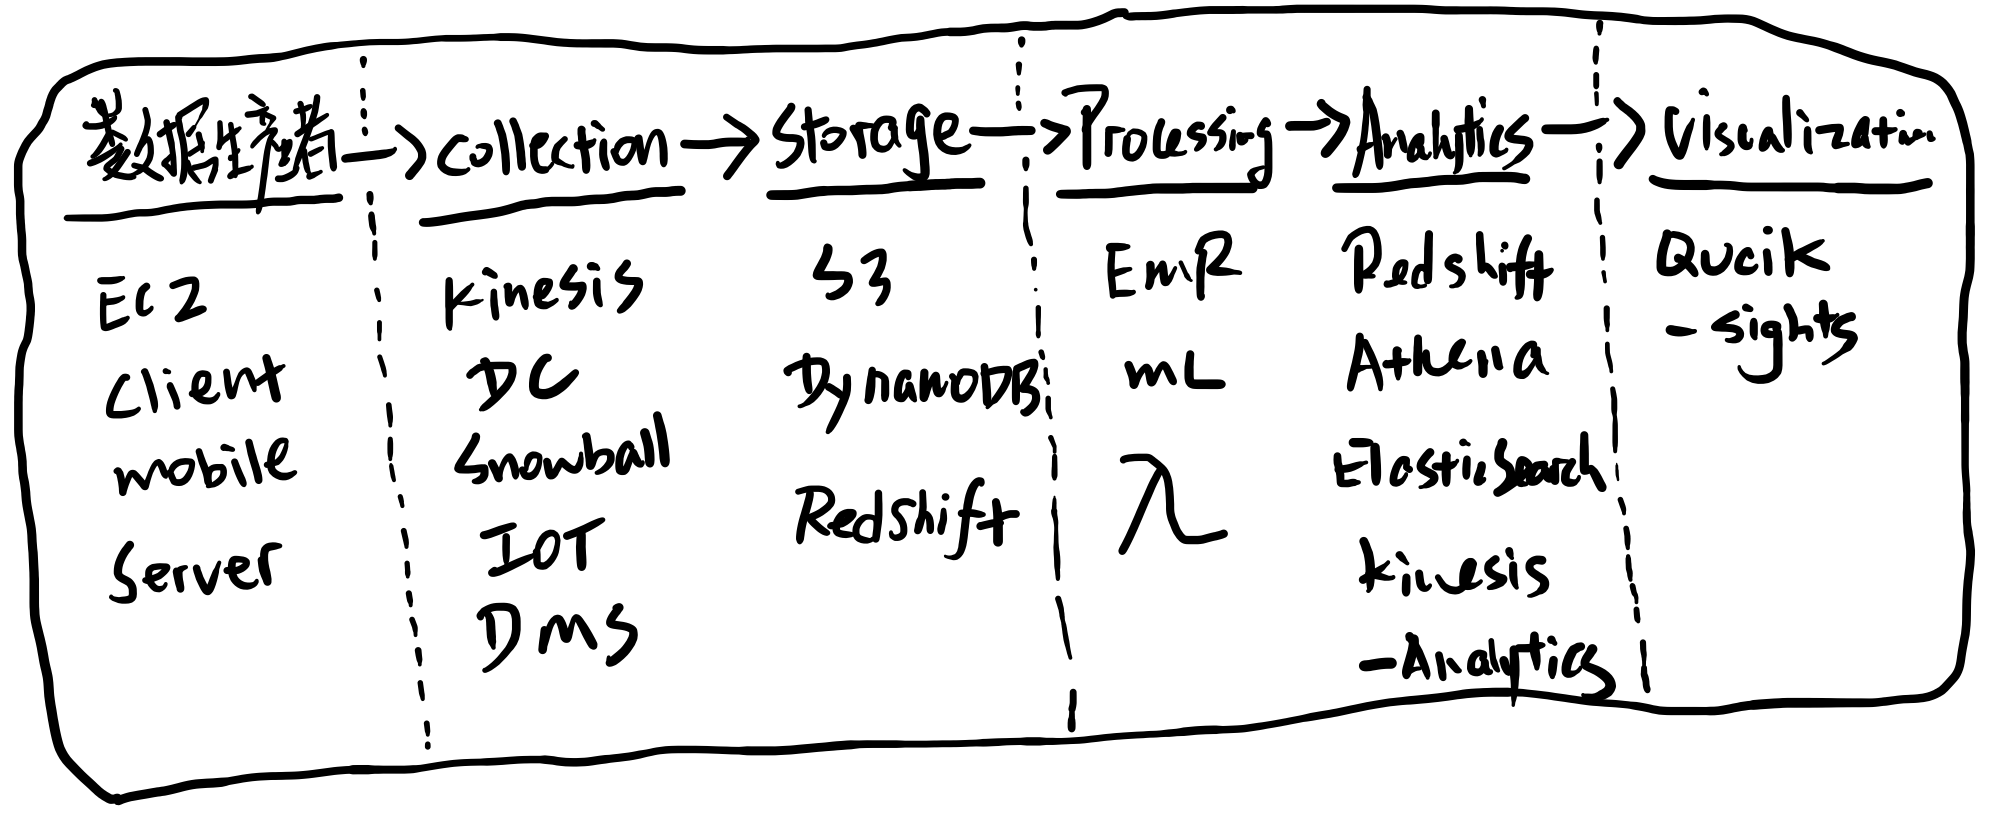 数据生产者 → Collection → Storage → Processing → Analytics → Visualization
EC2
Client
mobile
Server
Kinesis
DC
Snowball
IOT
DMS
S3
DynamoDB
Redshift
EMR
mL
λ
Redshift
Athena
ElasticSearch
Kinesis
-Analytics
Qucik
-sights